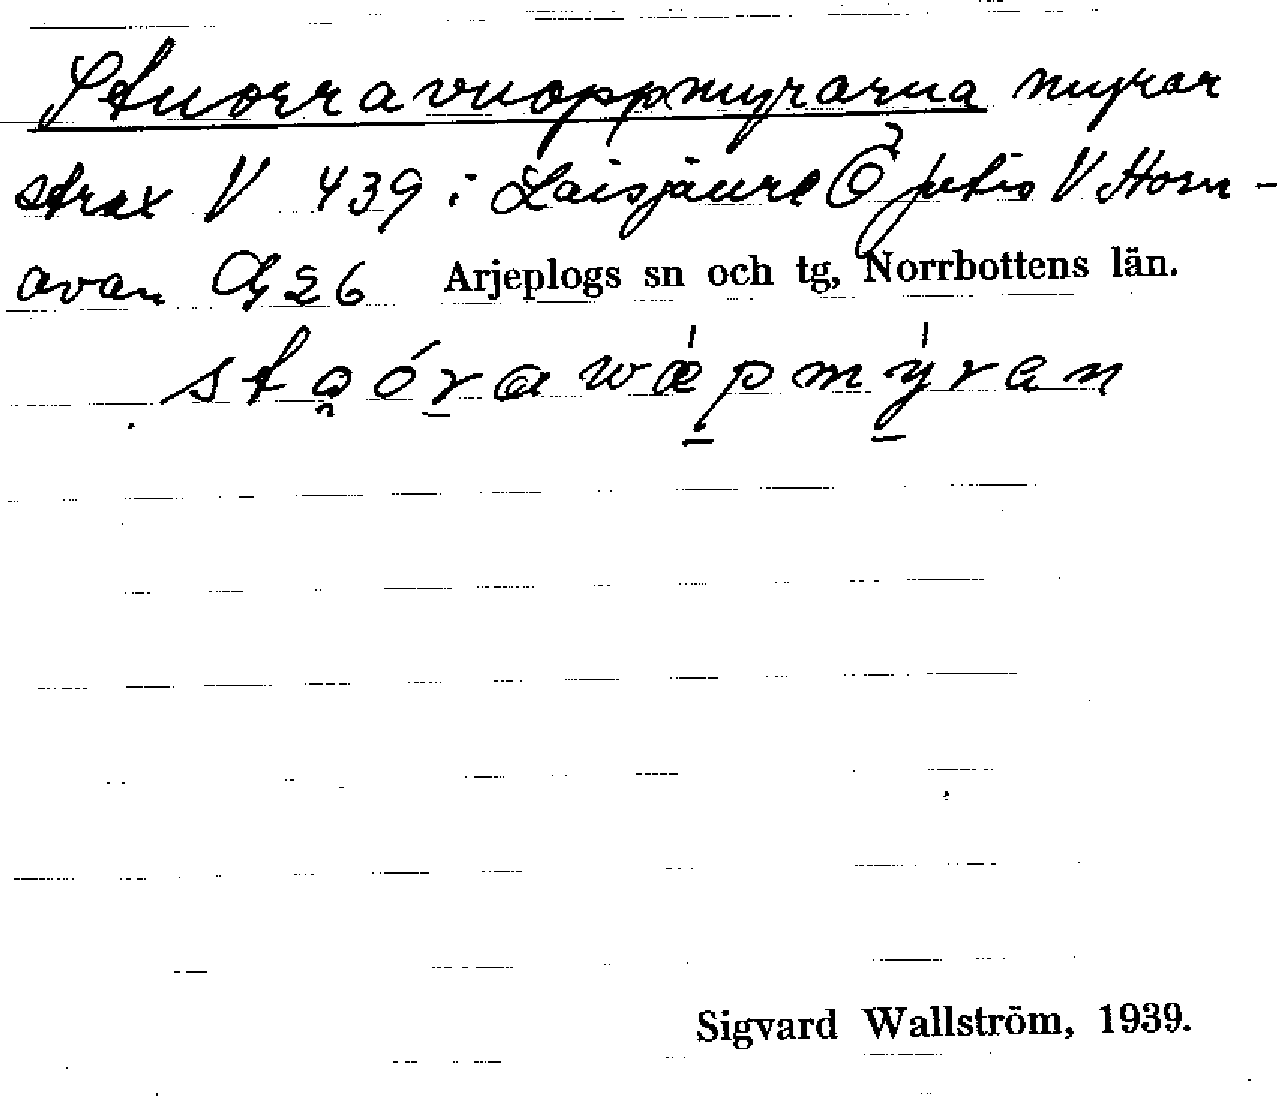 Stuorravuoppmyrarna myrar
strax V 439 i Laisjaure Ö V Horn-
avan 26 Arjeplogs sn och tg, Norrbottens län.
staórawápmýran
Sigvard Wallström, 1939.